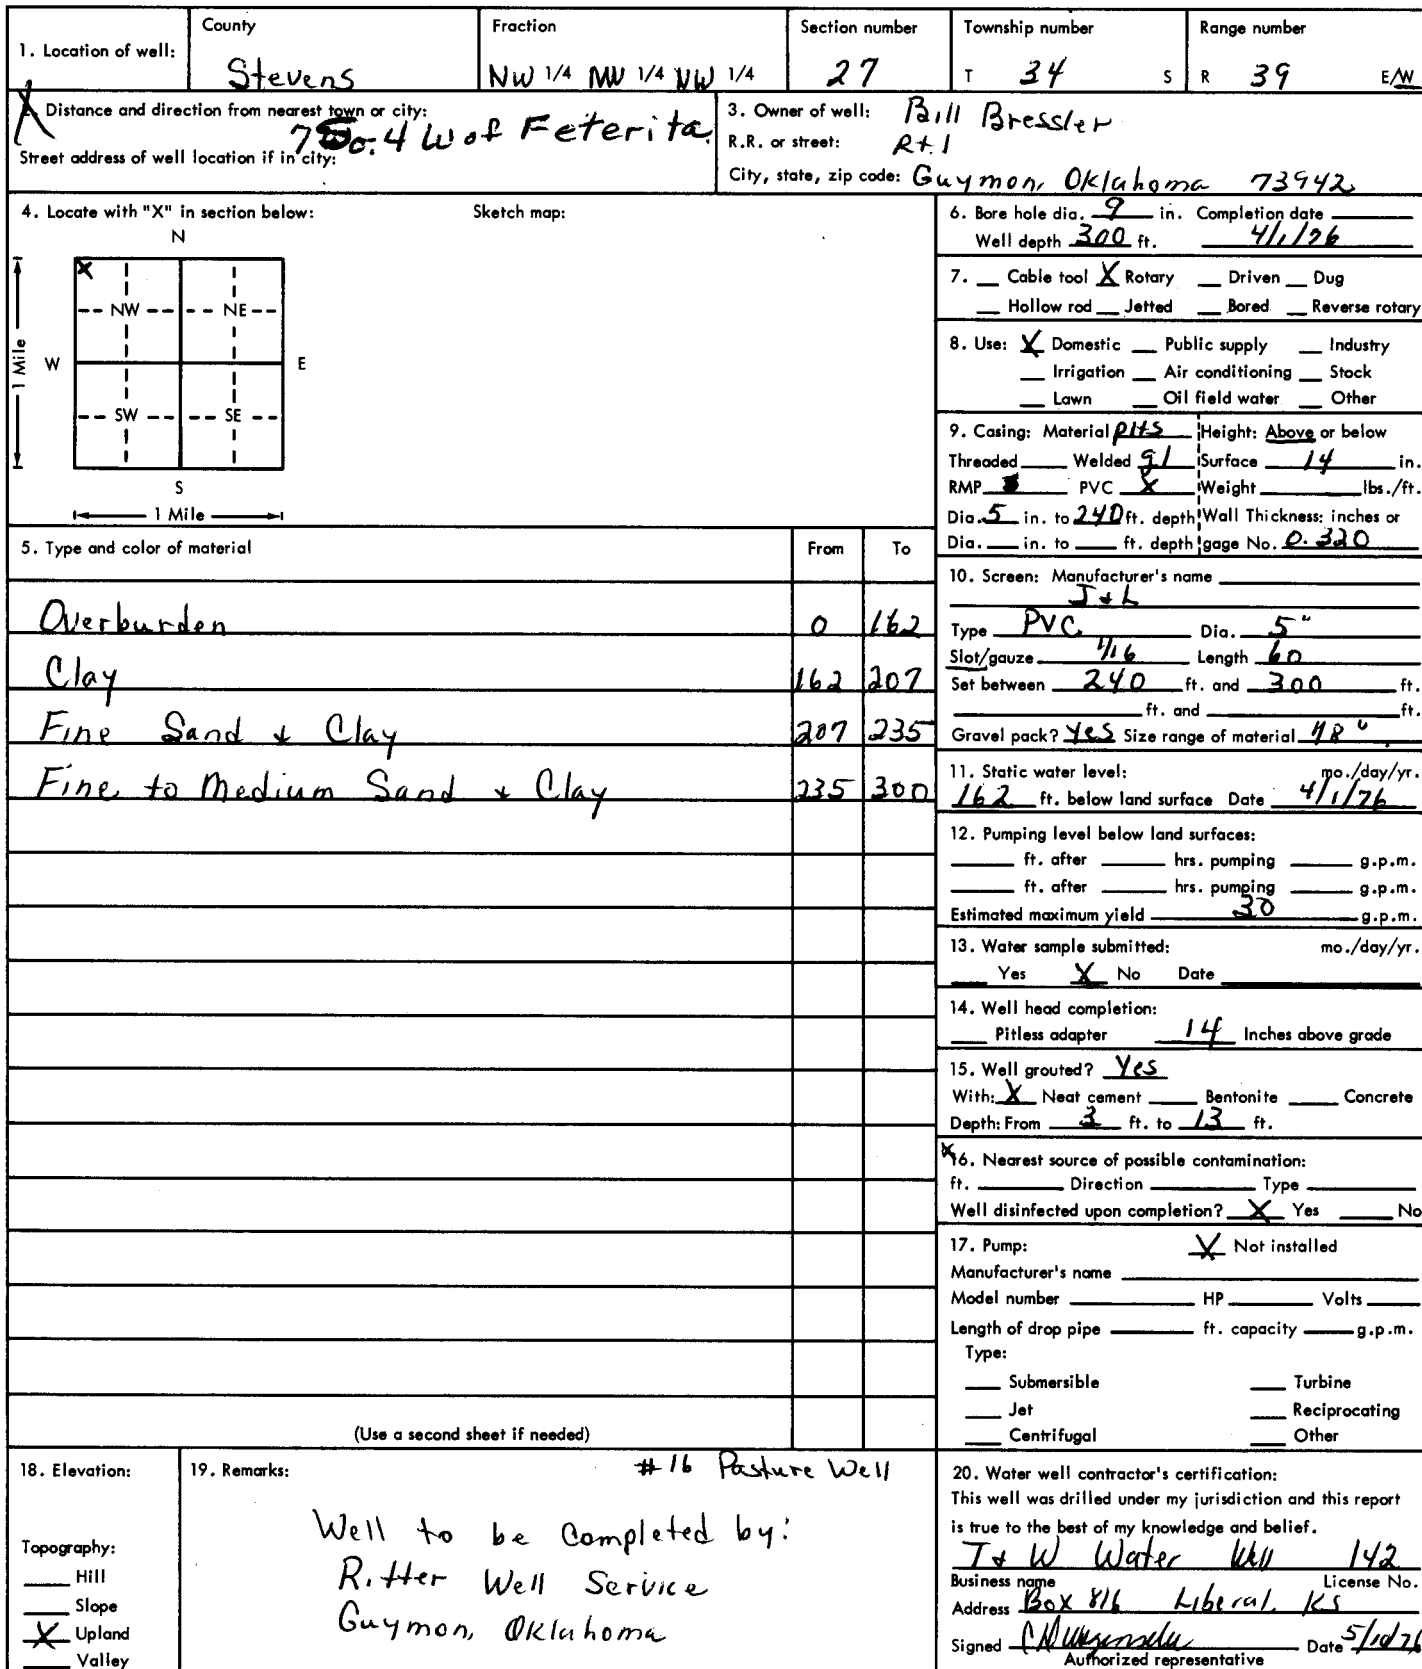 1. Location of well:
County
Stevens
Fraction
NW 1/4 NW 1/4 NW 1/4
Section number
27
Township number
T 34 S
Range number
R 39 E/W
Distance and direction from nearest town or city:
7 So. 4 W of Feterita
Street address of well location if in city:
3. Owner of well: Bill Bressler
R.R. or street: Rt. 1
City, state, zip code: Guymon, Oklahoma 73942
4. Locate with "X" in section below: Sketch map:
N
X
NW NE
W E
1 Mile
SW SE
S
1 Mile
5. Type and color of material From To
Overburden 0 162
Clay 162 207
Fine Sand & Clay 207 235
Fine to Medium Sand & Clay 235 300
(Use a second sheet if needed)
6. Bore hole dia. 9 in. Completion date
Well depth 300 ft. 4/1/76
7. Cable tool X Rotary Driven Dug
Hollow rod Jetted Bored Reverse rotary
8. Use: X Domestic Public supply Industry
Irrigation Air conditioning Stock
Lawn Oil field water Other
9. Casing: Material Height: Above or below
Threaded Welded gl Surface 14 in.
RMP PVC X Weight lbs./ft.
Dia. 5 in. to 240 ft. depth Wall Thickness: inches or
Dia. in. to ft. depth gage No. 0.320
10. Screen: Manufacturer's name
J & L
Type PVC Dia. 5"
Slot/gauze 1/16 Length 60
Set between 240 ft. and 300 ft.
ft. and ft.
Gravel pack? Yes Size range of material 1/8"
11. Static water level: mo./day/yr.
162 ft. below land surface Date 4/1/76
12. Pumping level below land surfaces:
ft. after hrs. pumping g.p.m.
ft. after hrs. pumping g.p.m.
Estimated maximum yield 30 g.p.m.
13. Water sample submitted: mo./day/yr.
Yes X No Date
14. Well head completion:
Pitless adapter 14 Inches above grade
15. Well grouted? Yes
With: X Neat cement Bentonite Concrete
Depth: From 3 ft. to 13 ft.
16. Nearest source of possible contamination:
ft. Direction Type
Well disinfected upon completion? X Yes No
17. Pump: X Not installed
Manufacturer's name
Model number HP Volts
Length of drop pipe ft. capacity g.p.m.
Type:
Submersible Turbine
Jet Reciprocating
Centrifugal Other
18. Elevation:
Topography:
Hill
Slope
X Upland
Valley
19. Remarks: #16 Pasture Well
Well to be Completed by:
Ritter Well Service
Guymon, Oklahoma
20. Water well contractor's certification:
This well was drilled under my jurisdiction and this report
is true to the best of my knowledge and belief.
J & W Water Well 142
Business name License No.
Address Box 816 Liberal, KS
Signed Date 5/10/76
Authorized representative